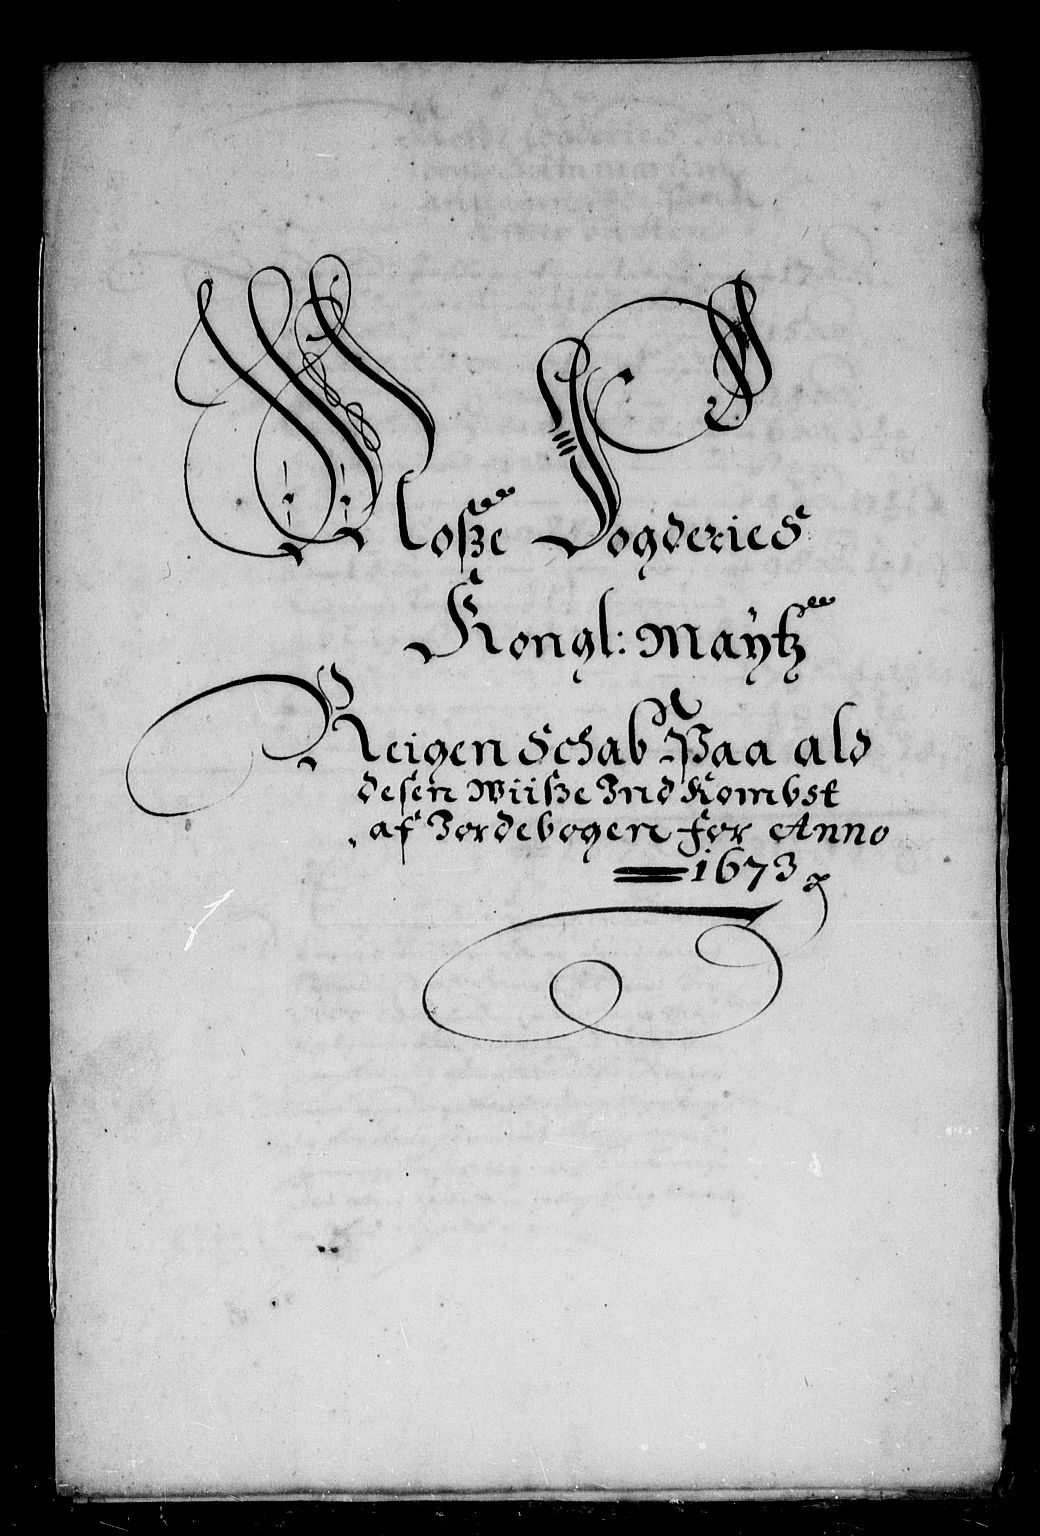 Mosße Fogderies
Kongl: Maÿtz
Reigenschab Paa ald
desen Wiisße Ind Kombst
af Jordebogen for Anno
1673